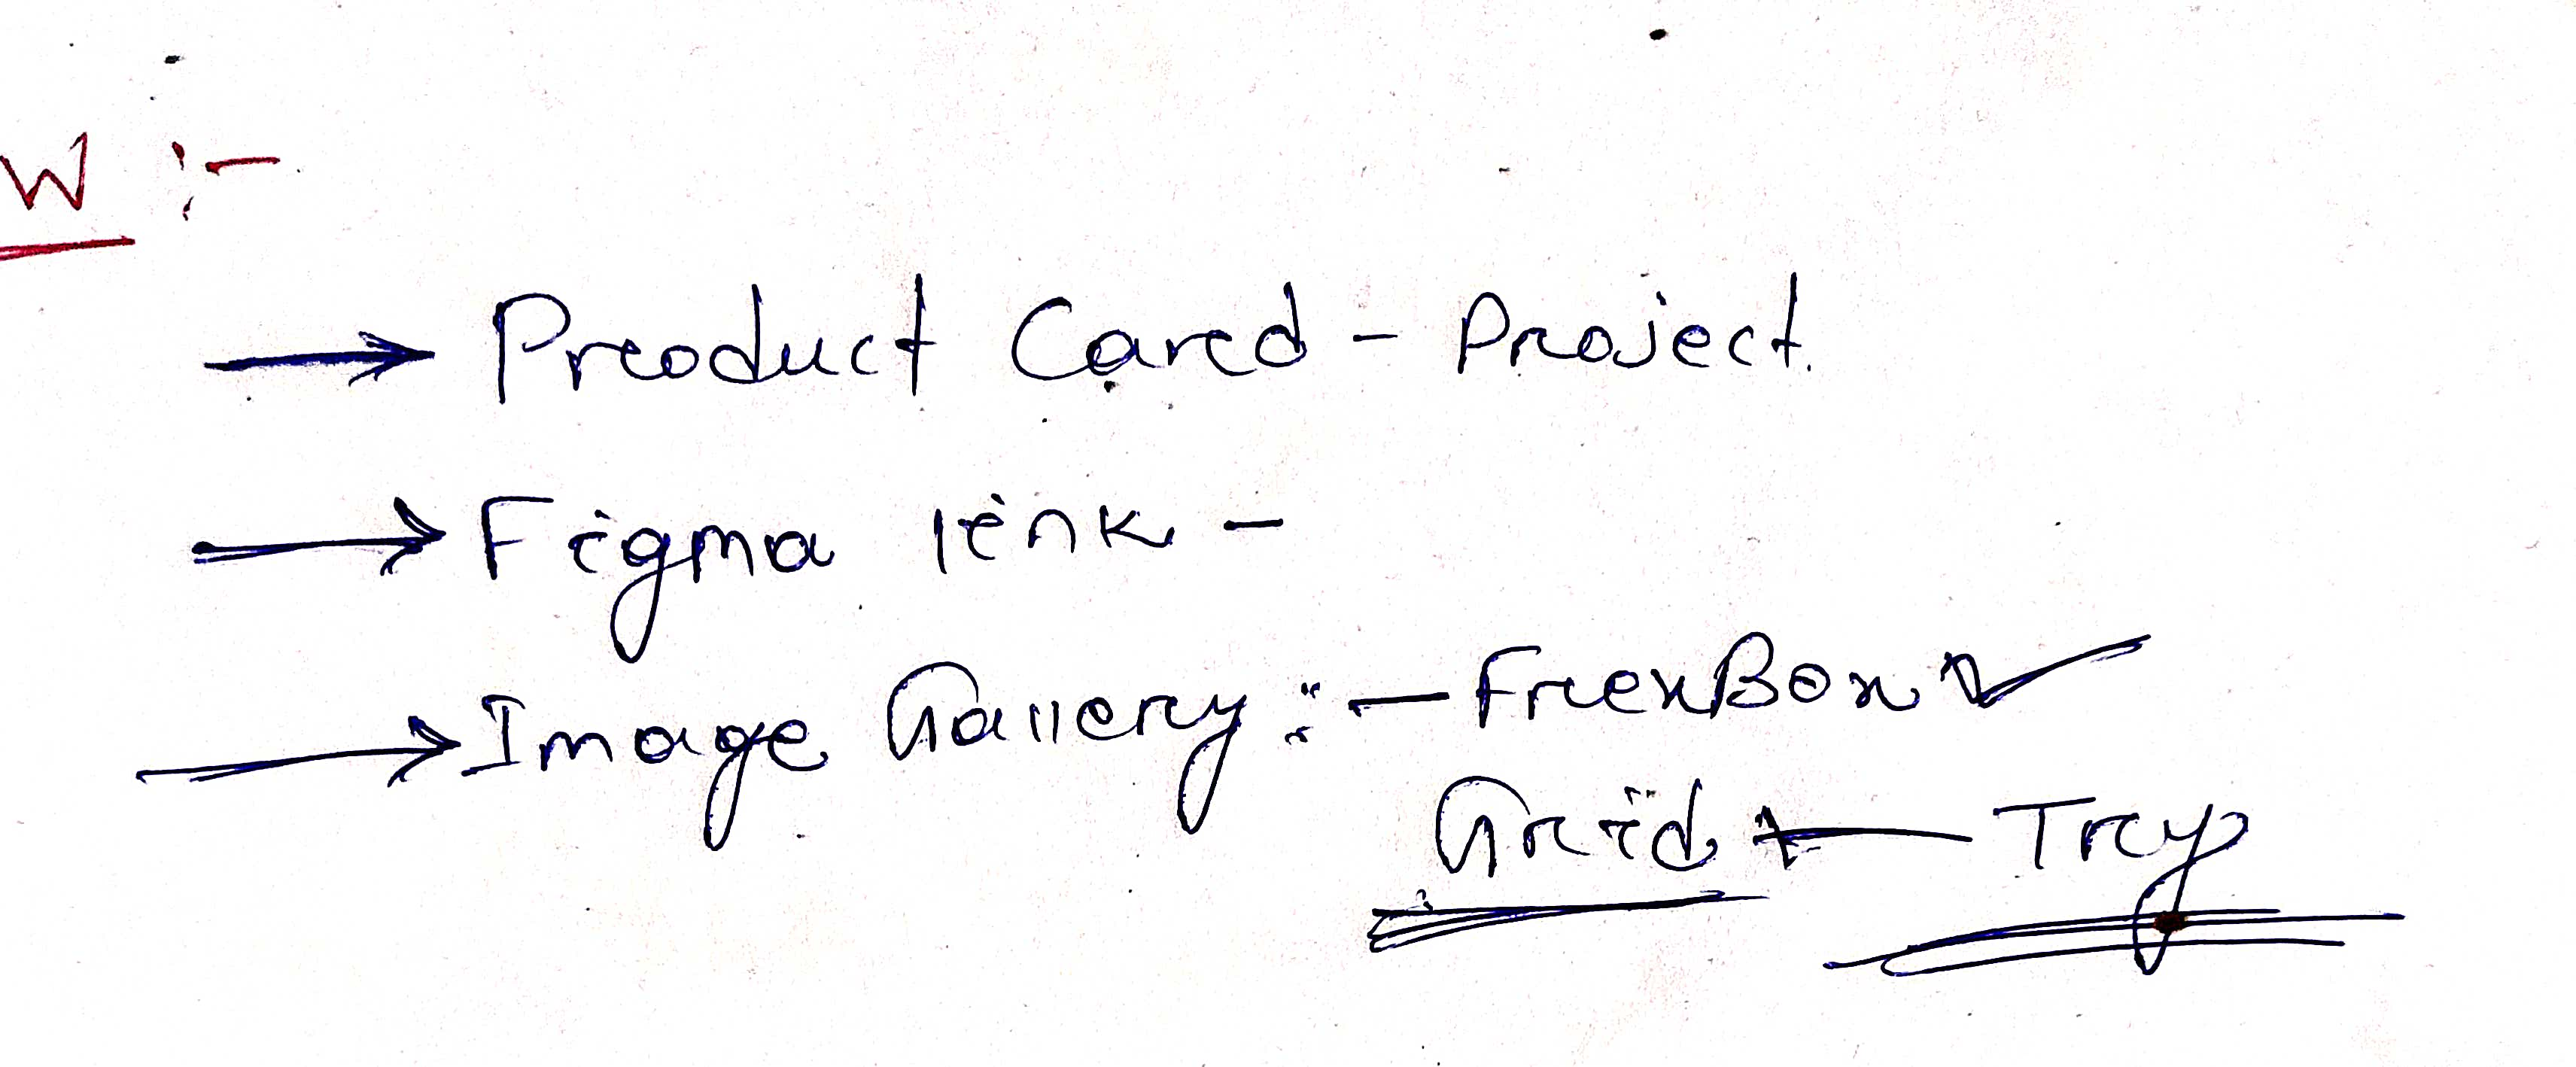 W :-
→ Product Card - Project.
→ Figma link -
→ Image Gallery :- FlexBox ✓
Grid ← Try